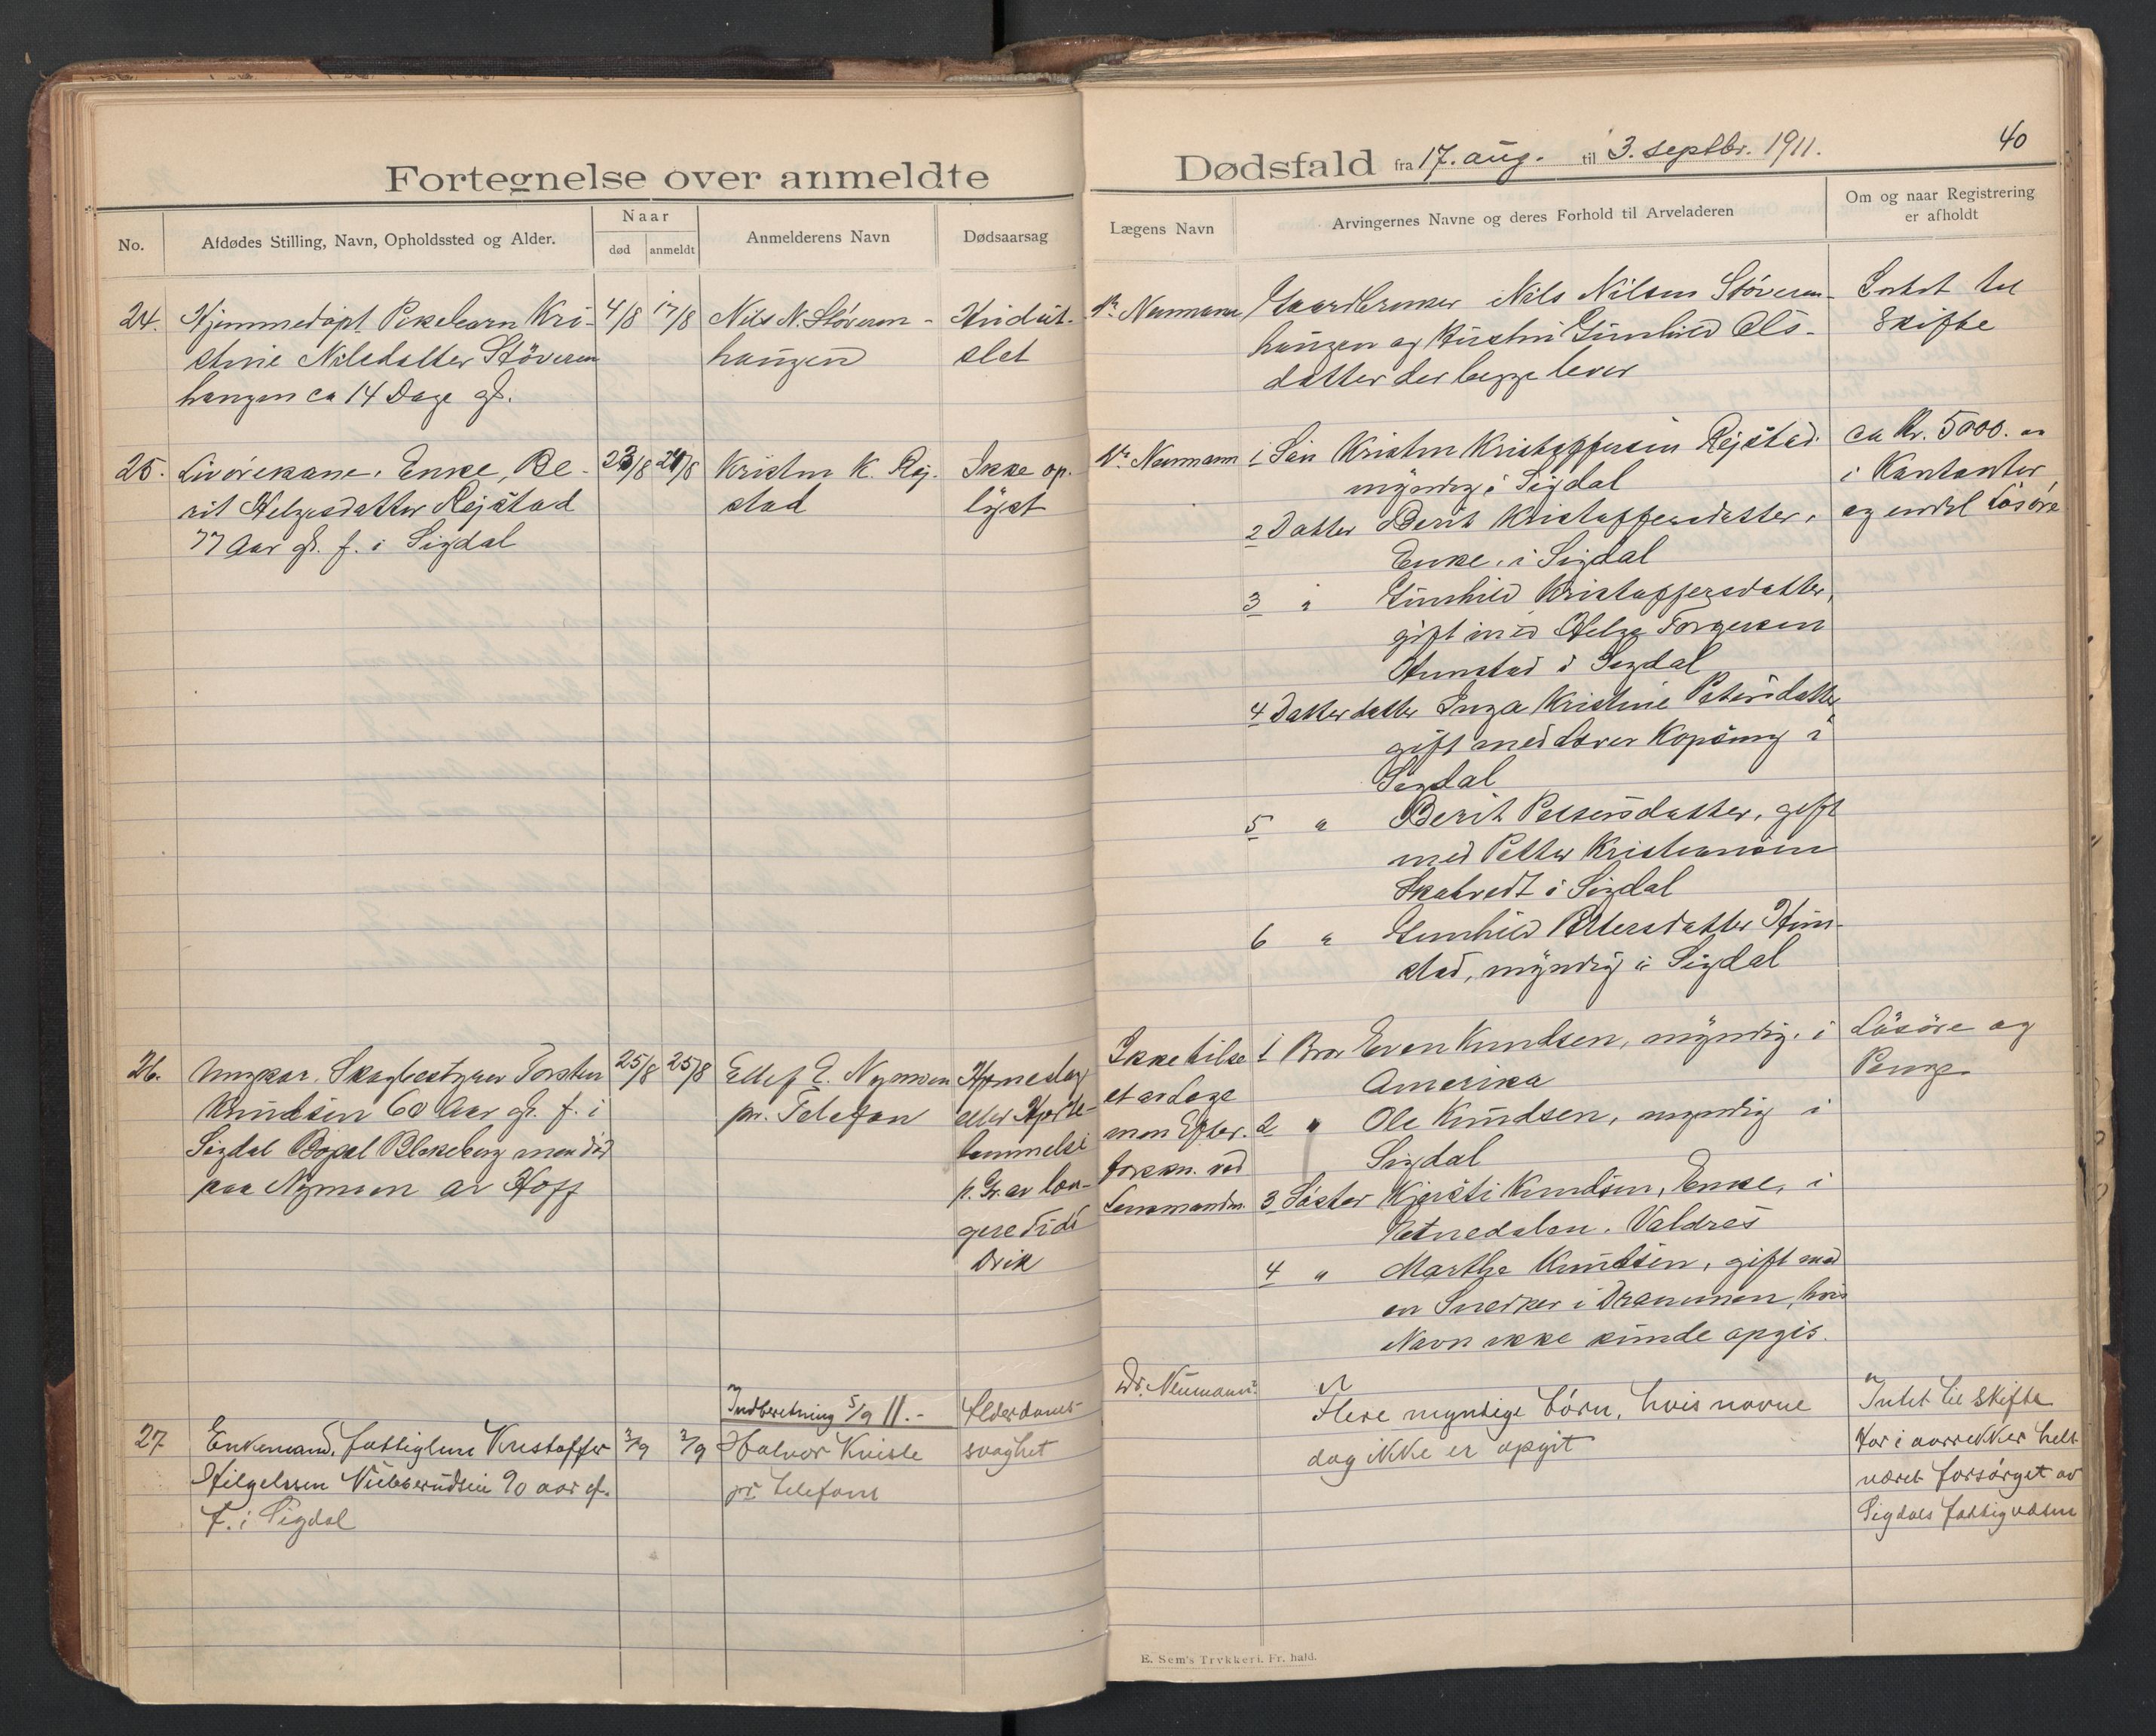 40
Fortegnelse over anmeldte
Dødsfald fra 17. aug. til 3. septbr. 1911.
No.
Afdødes Stilling, Navn, Opholdssted og Alder.
Naar
død
anmeldt
Anmelderens Navn
Dødsaarsag
Lægens Navn
Arvingernes Navne og deres Forhold til Arveladeren
Om og naar Registrering
er afholdt
24.
Hjemmedøpt Pikebarn Kri-
stine Nilsdatter Støveren
haugen ca 14 Dage gl.
4/8
17/8
Nils N. Støveren-
haugen
Hudut-
slet
Dr Neumann
Gaardbruker Nils Nilsen Støveren-
haugen og Hustru Gunhild Ols-
datter der begge lever
Intet til
Skifte
25.
Livørekone, Enke, Be-
rit Helgesdatter Rejstad
77 Aar gl. f. i Sigdal
23/8
24/8
Kristen K. Rej-
stad
Ikke op-
lyst
Dr Neumann
1 Søn Kristen Kristoffersen Rejstad
myndig i Sigdal
2 Datter Berit Kristoffersdatter,
Enke, i Sigdal
3 " Gunhild Kristoffersdatter,
gift med Helge Torgersen
Hunstad i Sigdal
4 Datterdatter Inga Kristine Petersdatter
gift med Lærer Kopseng i
Sigdal
5 " Berit Pettersdatter, gift
med Petter Kristiansen
Skatvedt i Sigdal
6 " Gunhild Pettersdatter Hun-
stad, myndig i Sigdal
ca Kr. 5000.
i Kontanter
og endel Løsøre
26.
Ungkar, Skogbestyrer Torsten
Knudsen 60 Aar gl. f. i
Sigdal Bopæl Blekeberg men død
paa Nymoen av Hoff
25/8
25/8
Ellef E. Nymoen
pr. Telefon
Hjerneslag
eller Hjerte-
lammelse
p. Gr. av læn-
gere Tids
Drik
Ikke tilse
et av Læge
men Efter-
forskn. ved
Lensmanden
1 Bror Even Knudsen, myndig, i
Amerika
2 " Ole Knudsen, myndig i
Sigdal
3 Søster Kjersti Knudsen, Enke, i
Etnedalen, Valdres
4 " Marthe Knudsen, gift med
en Snedker i Drammen, hvis
Navn ikke kunde opgis.
Løsøre og
Penge
27
Enkemand, fattiglem Kristoffer
Hilgelssen Nubberudseie 90 aar gl.
F. i Sigdal
3/9
3/9
Indberetning 5/9 11.-
Halvor Kvisle
pr telefon
Alderdoms-
svaghet
Dr. Neumann
Flere myndige børn, hvis navne
dog ikke er opgit
Intet til skifte
Har i aarrekker helt
været forsørget av
Sigdals fattigvæsen
E. Sem's Trykkeri, Fr. hald.